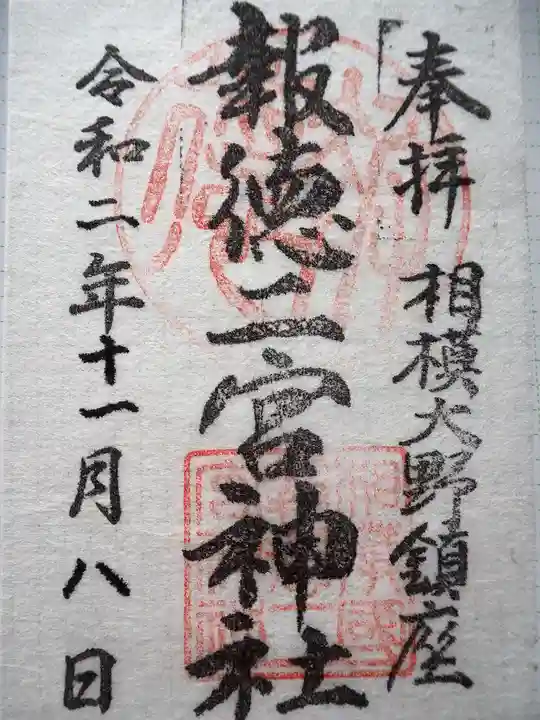 奉拝
相模大野鎮座
報徳二宮神社
令和二年十一月八日